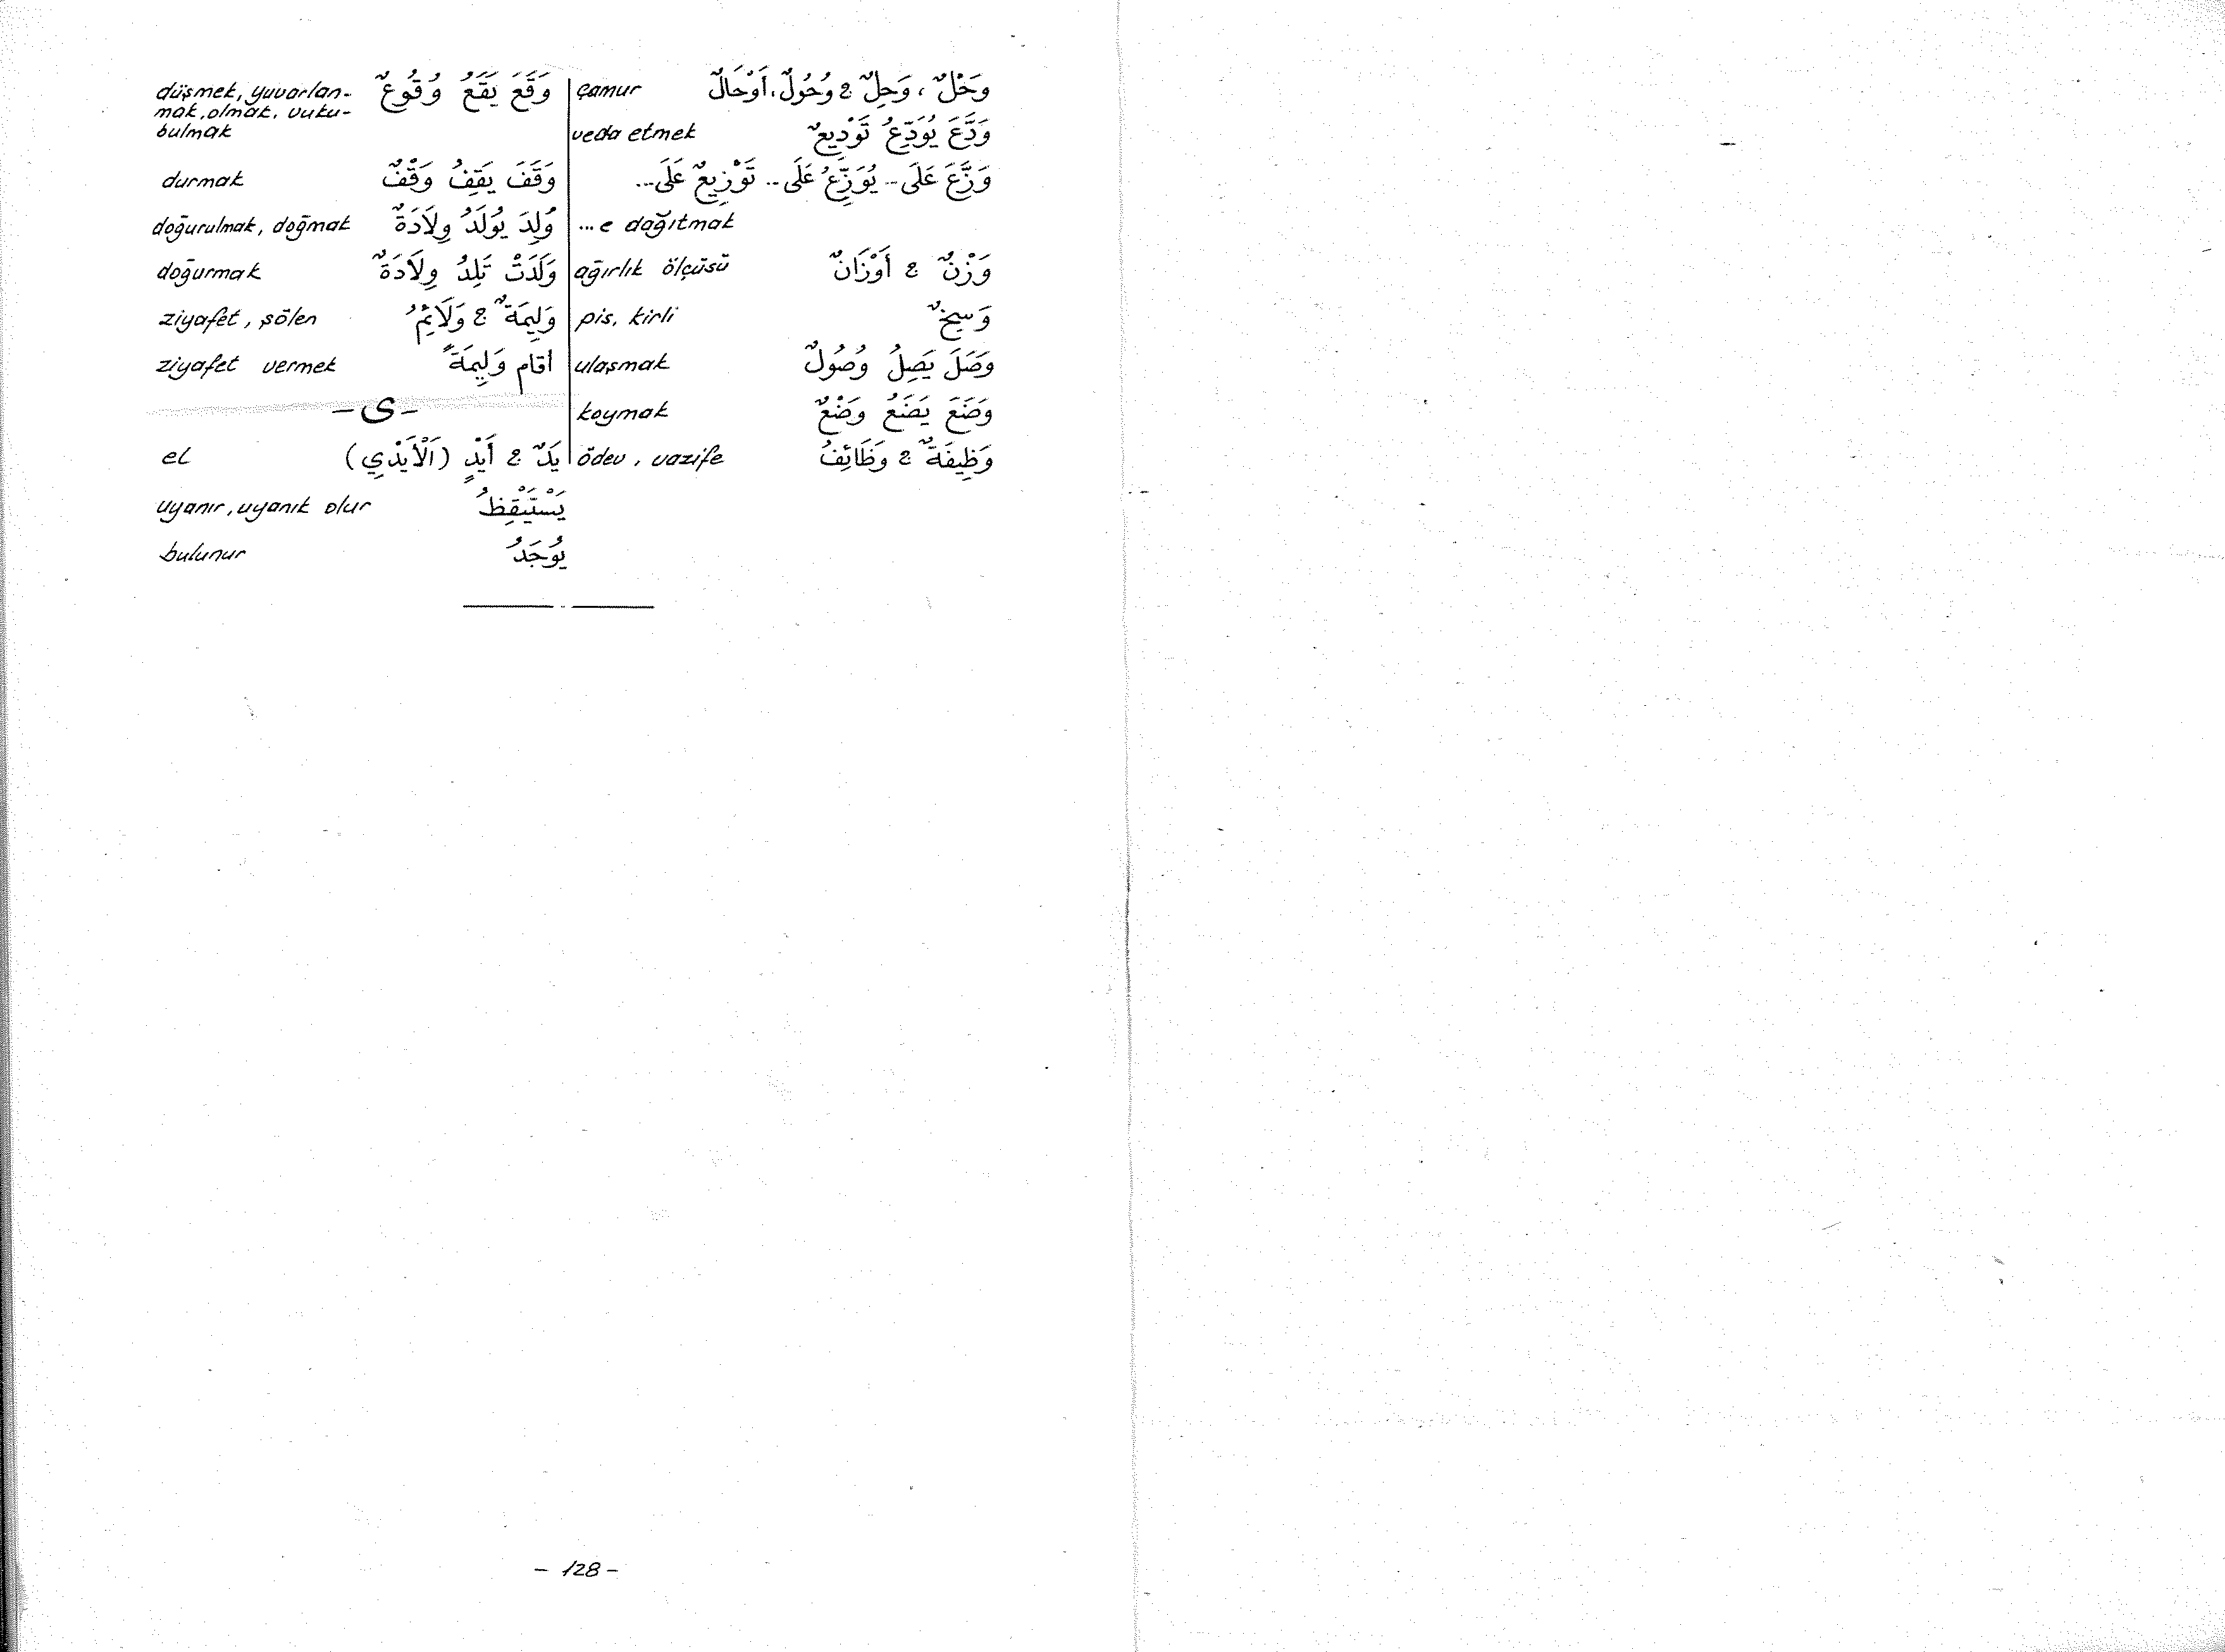 وَحْلٌ ، وَحِلٌ ج وُحُولٌ، أَوْحَالٌ çamur
وَدَّعَ يُوَدِّعُ تَوْدِيعٌ veda etmek
وَزَّعَ عَلَى.. يُوَزِّعُ عَلَى.. تَوْزِيعٌ عَلَى...
...e dağıtmak
وَزْنٌ ج أَوْزَانٌ ağırlık ölçüsü
وَسِخٌ pis, kirli
وَصَلَ يَصِلُ وُصُولٌ ulaşmak
وَضَعَ يَضَعُ وَضْعٌ koymak
وَظِيفَةٌ ج وَظَائِفُ ödev, vazife
وَقَعَ يَقَعُ وُقُوعٌ düşmek, yuvarlan-
mak, olmak, vuku-
bulmak
وَقَفَ يَقِفُ وَقْفٌ durmak
وُلِدَ يُولَدُ وِلَادَةٌ doğurulmak, doğmak
وَلَدَتْ تَلِدُ وِلَادَةٌ doğurmak
وَلِيمَةٌ ج وَلَائِمُ ziyafet, şölen
اقام وَلِيمَةً ziyafet vermek
-ى-
يَدٌ ج أَيْدٍ (اَلْأَيْدِي) el
يَسْتَيْقِظُ uyanır, uyanık olur
يُوجَدُ bulunur
- 128 -